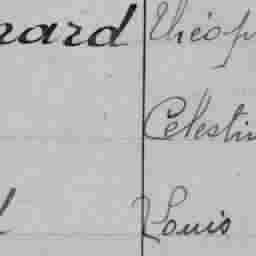 nard Théop
Célestin
Louis